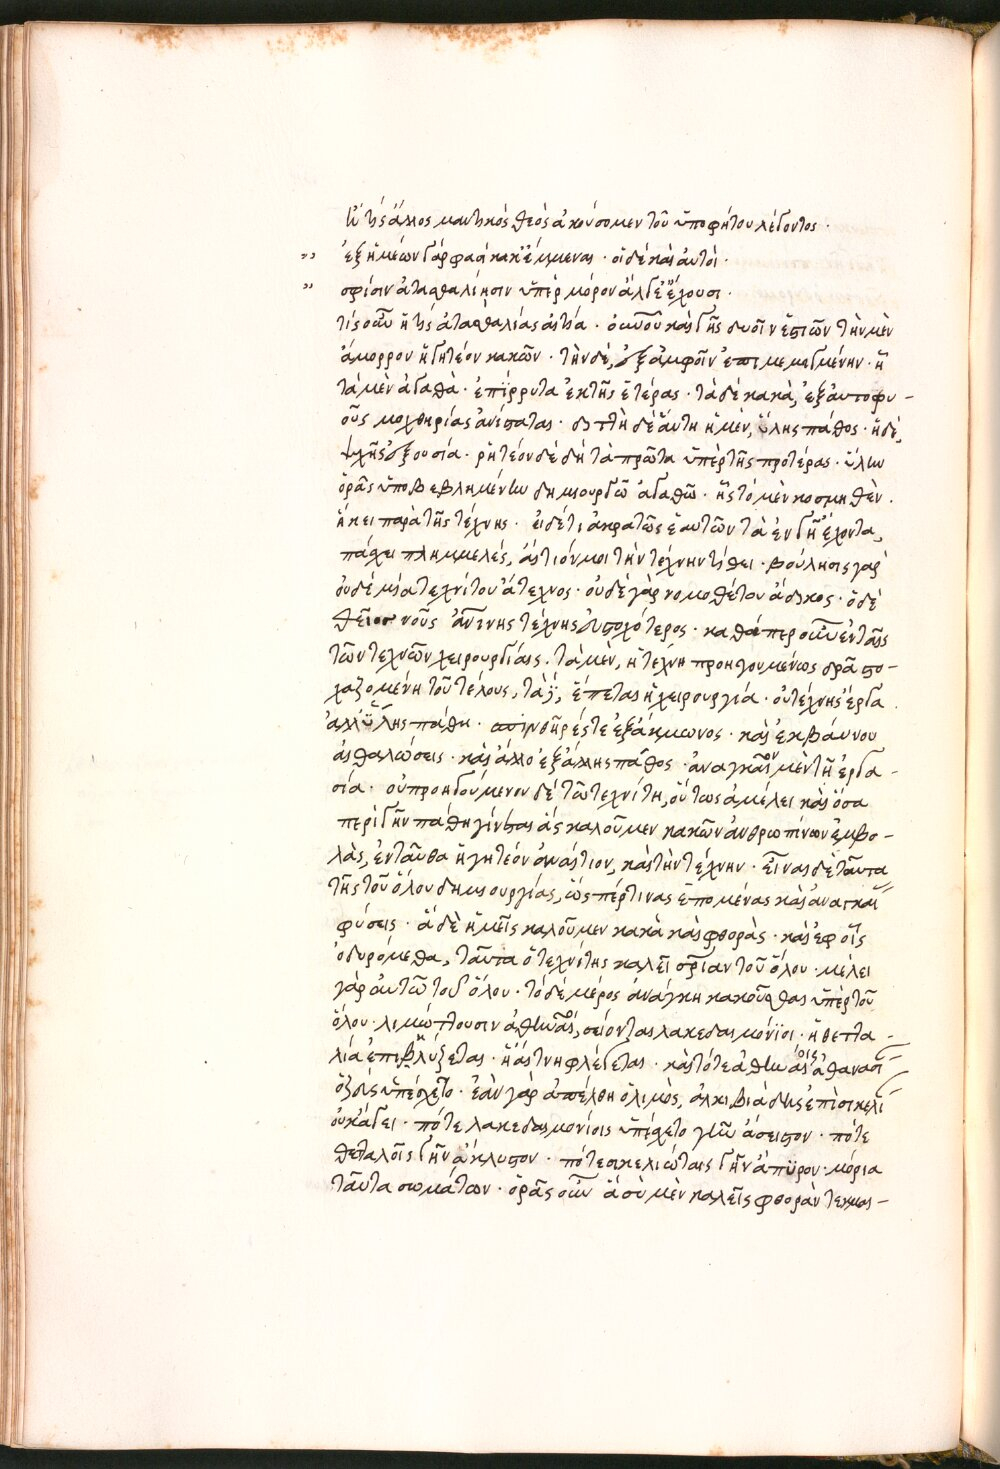 εἴ τις ἄλλος μαντικὸς θεὸς ἀκούσομεν τοῦ ὑποφήτου λέγοντος ·
" ἐξ ἡμέων γάρ φασι κακ' ἔμμεναι · οἱ δὲ καὶ αὐτοὶ ·
" σφίσιν ἀτασθαλίησιν ὑπὲρ μόρον ἄλγε' ἔχουσι .
τίς οὖν ἡ τῆς ἀτασθαλίας αἰτία · οὐρανοῦ καὶ γῆς δυοῖν ἑστιῶν τὴν μὲν
ἄμορρον ἡγητέον κακῶν · τὴν δὲ, ἐξ ἀμφοῖν μεμιγμένην · ᾗ
τὰ μὲν ἀγαθὰ · ἐπίρρυτα ἐκ τῆς ἑτέρας · τὰ δὲ κακὰ, ἐξ αὐτοφυ -
οῦς μοχθηρίας ἀνίσταται · διττὴ δὲ αὕτη ἡ μὲν, ὕλης πάθος · ἡ δὲ,
ψυχῆς ἐξουσία · ῥητέον δὲ δὴ τὰ πρῶτα ὑπὲρ τῆς προτέρας · ὕλην
ὁρᾷς ὑποβεβλημένην δημιουργῷ ἀγαθῷ · ἧς τὸ μὲν κοσμηθὲν .
ἥκει παρὰ τῆς τέχνης · εἰ δέ τι ἀκρατῶς ἑαυτῶν τὰ ἐν γῇ ἔχοντα,
πάσχει πλημμελές, ἀναίτιόν μοι τὴν τέχνην τίθει · βούλησις γὰρ
οὐδεμία τεχνίτου ἄτεχνος · οὐδὲ γὰρ νομοθέτου ἄδικος · ὁ δὲ
θεῖος νοῦς ἀνθρωπίνης τέχνης εὐστοχότερος · καθάπερ οὖν ἐν ταῖς
τῶν τεχνῶν χειρουργίαις . τὰ μὲν, ἡ τέχνη προηγουμένως δρᾷ στο -
χαζομένη τοῦ τέλους, τὰ δὲ, ἕπεται ἡ χειρουργία · οὐ τέχνης ἔργα .
ἀλλ' ὕλης πάθη · σπινθῆρές τε ἐξ ἄκμωνος · καὶ ἐκ βαύνου
αἰθαλώσεις · καὶ ἄλλο ἐξ ἄλλης πάθος · ἀναγκαῖον μὲν τῇ ἐργα -
σίᾳ · οὐ προηγούμενον δὲ τῷ τεχνίτῃ, οὕτως ἀμέλει καὶ ὅσα
περὶ γῆν πάθη γίνεται ἃς καλοῦμεν κακῶν ἀνθρωπίνων ἐμβο -
λὰς, ἐνταῦθα ἡγητέον ἀναίτιον, καὶ τὴν τέχνην · εἶναι δὲ ταῦτα
τῆς τοῦ ὅλου δημιουργίας, ὥσπερ τινας ἑπομένας καὶ ἀναγκαί
φύσεις · ἃ δὲ ἡμεῖς καλοῦμεν κακὰ καὶ φθορὰς · καὶ ἐφ' οἷς
ὀδυρόμεθα, ταῦτα ὁ τεχνίτης καλεῖ σωτηρίαν τοῦ ὅλου · μέλει
γὰρ αὐτῷ τοῦ ὅλου · τὸ δὲ μέρος ἀνάγκη κακοῦσθαι ὑπὲρ τοῦ
ὅλου · λιμώττουσιν ἀθηναῖοι, σείονται λακεδαιμόνιοι · ἡ θεττα -
λία ἐπικλύζεται · ἡ αἴτνη φλέγεται · καὶ πότε ἀθηναίοις ἀθανασί
ὁ ζεὺς ὑπέσχετο · ἐὰν γὰρ ἀπέλθῃ ὁ λιμὸς, ἀλκιβιάδης ἐπὶ σικελί
οὐκ ἄγει · πότε λακεδαιμονίοις ὑπέσχετο γῆν ἄσειστον · πότε
θετταλοῖς γῆν ἄκλυστον · πότε σικελιώταις γῆν ἄπυρον · μόρια
ταῦτα σωμάτων · ὁρᾷς οὖν ἃ σὺ μὲν καλεῖς φθορὰν τεκμαι -